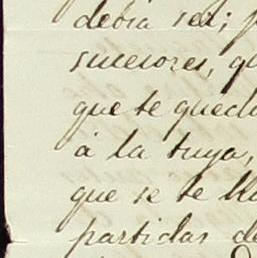 debia ser;
sucesores,
que te qued
á la tuya,
que se te
partidas de